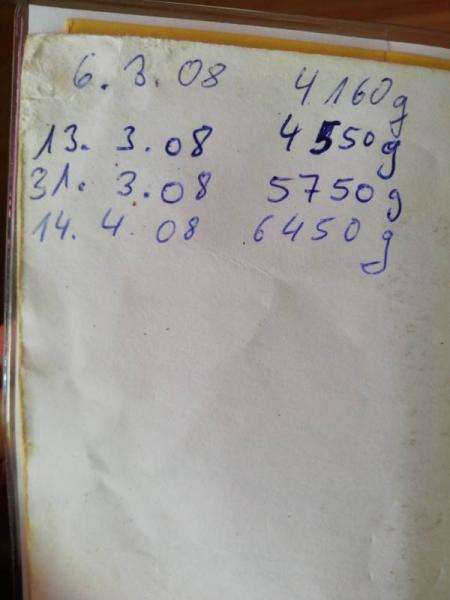 6. 3. 08 4160g
13. 3. 08 4550g
31. 3. 08 5750g
14. 4. 08 6450g